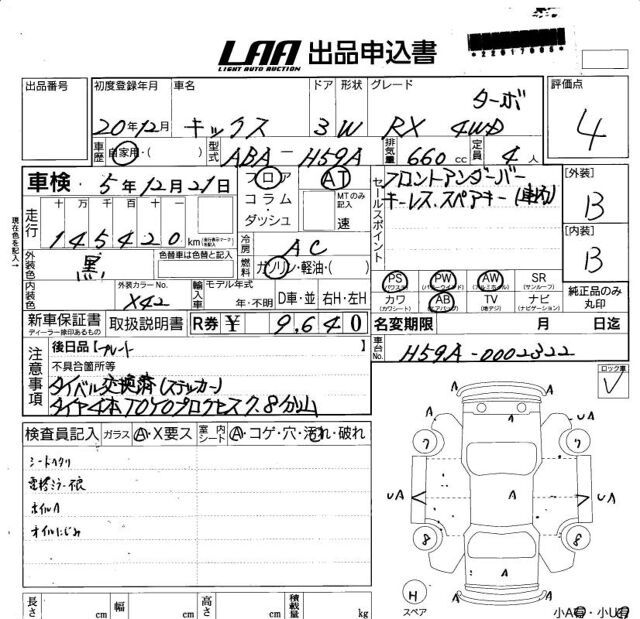 LAA 出品申込書
LIGHT AUTO AUCTION
出品番号 初度登録年月 車名 ドア 形状 グレード 評価点
20年12月 キックス 3 W RX 4WD ターボ 4
車歴 自家用・( ) 型式 ABA-H59A 排気量 660cc 定員 4人
車検 5年12月21日
フロア AT
コラム MTのみ記入
ダッシュ 速
走行 十 万 千 百 十 一
145420 km
現在色を記入→
冷房 AC
外装色 黒 色替車は色替と記入
燃料 ガソリン・軽油・( )
内装色 外装カラーNo. X42 輸入車 モデル年式 年・不明 D車・並 右H・左H
セールスポイント
フロントアンダーバー
キーレス、スペアキー(車内)
[外装] B
[内装] B
PS PW AW SR
(サンルーフ)
カワ AB TV ナビ
(カワシート) (エアバッグ) (地デジ) (ナビゲーション)
純正品のみ丸印
新車保証書 取扱説明書 R券 ¥ 9,640
ディーラー印のあるもの
名変期限 月 日迄
車台No. H59A-0002322
注意事項
後日品【プレート
不具合箇所等
タイベル交換済(ステッカー)
タイヤ4本TOYOプロクセス7.8分山
ロック車
検査員記入 ガラス A・X要ス 室内シート A・コゲ・穴・汚れ・破れ
ホイルA
オイルにじみ
7 7
A
UA A UA
A
8 8
A A
A
H
スペア
小A有・小U有
長さ cm 幅 cm 高さ cm 積載量 kg